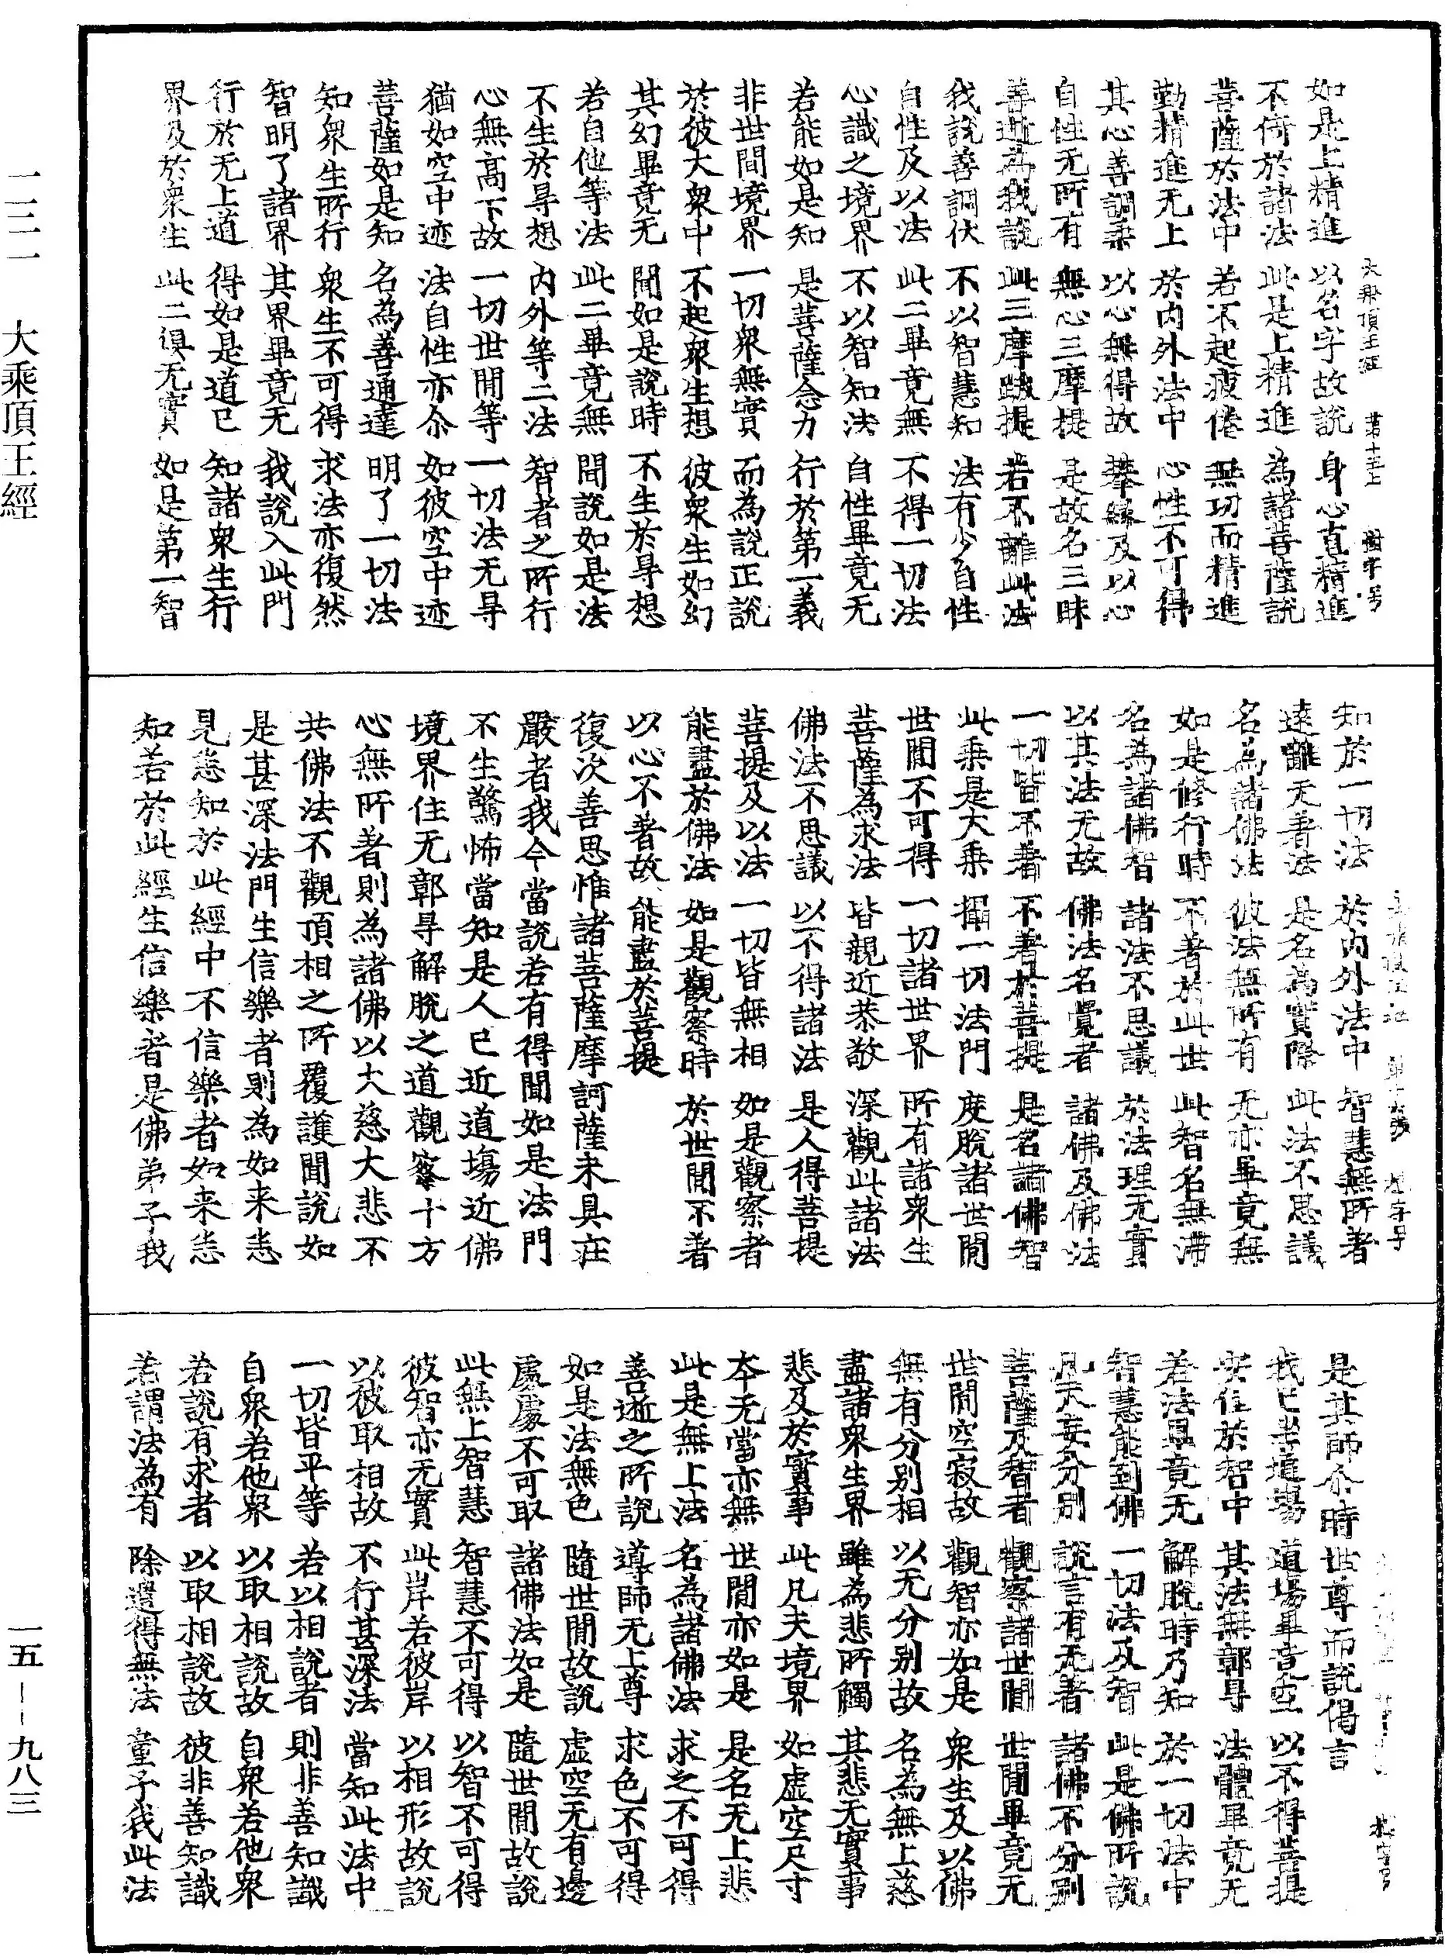 如是上精進　以名字故說　身心直精進
不倚於諸法　此是上精進　為諸菩薩說
菩薩於法中　若不起疲倦　無切而精進
勤精進无上　於内外法中　心性不可得
其心善調柔　以心無得故　攀緣及以心
自性无所有　無心三摩提　是故名三昧
善逝為我說　此三摩跋提　若不離此法
我說善調伏　不以智慧知　法有少自性
自性及以法　此二畢竟無　不得一切法
心識之境界　不以智知法　自性畢竟无
若能如是知　是菩薩念力　行於第一義
非世間境界　一切衆無實　而為說正說
於彼大衆中　不起衆生想　彼衆生如幻
其幻畢竟无　聞如是說時　不生於㝵想
若自他等法　此二畢竟無　間說如是法
不生於㝵想　内外等二法　智者之所行
心無高下故　一切世間等　一切法无㝵
猶如空中迹　法自性亦尒　如彼空中迹
菩薩如是知　名為善通達　明了一切法
知衆生所行　衆生不可得　求法亦復然
智明了諸界　其界畢竟无　我說入此門
行於无上道　得如是道已　知諸衆生行
界及於衆生　此二俱无實　如是第一智
知於一切法　於内外法中　智慧無所著
遠離无著法　是名為實際　此法不思議
名為諸佛法　彼法無所有　无亦畢竟無
如是修行時　不著於此世　此智名無滯
名為諸佛智　諸法不思議　於法理无實
以其法无故　佛法名覺者　諸佛及佛法
一切皆不著　不著於菩提　是名諸佛智
此乘是大乘　攝一切法門　度脫諸世間
世間不可得　一切諸世界　所有諸衆生
菩薩為求法　皆親近恭敬　深觀此諸法
佛法不思議　以不得諸法　是人得菩提
菩提及以法　一切皆無相　如是觀察者
能盡於佛法　如是觀察時　於世間不著
以心不著故　能盡於菩提
復次善思惟諸菩薩摩訶薩未具莊
嚴者我今當說若有得聞如是法門
不生驚怖當知是人已近道塲近佛
境界住无鄣㝵解脫之道觀察十方
心無所著則為諸佛以大慈大悲不
共佛法不觀頂相之所覆護聞說如
是甚深法門生信樂者則為如来悉
見悉知於此經中不信樂者如来悉
知若於此經生信樂者是佛弟子我
是其師尒時世尊而說偈言
我已坐道場　道場畢竟空　以不得菩提
安住於智中　其法無鄣㝵　法體畢竟无
若法畢竟无　解脫時乃知　於一切法中
智慧能到佛　一切法及智　此是佛所說
凡夫妄分別　說言有无著　諸佛不分別
菩薩及智者　觀察諸世間　世間畢竟无
世間空寂故　觀智亦如是　衆生及以佛
無有分別相　以无分別故　名為無上慈
盡諸衆生界　雖為悲所觸　其悲无實事
悲及於實事　此凡夫境界　如虛空尺寸
本无當亦無　世間亦如是　是名无上悲
此是無上法　名為諸佛法　求之不可得
善逝之所說　導師无上尊　求色不可得
如是法無色　隨世間故說　虛空无有邊
處處不可取　諸佛法如是　隨世間故說
此無上智慧　智慧不可得　以智不可得
彼智亦无實　此岸若彼岸　以相形故說
以彼取相故　不行甚深法　當知此法中
一切皆平等　若以相說者　則非善知識
自衆若他衆　以取相說故　自衆若他衆
若說有求者　以取相說故　彼非善知識
若謂法為有　除遣得無法　童子我此法
大乘頂王經　第十五　樹字号
一一三一　大乘頂王經
一五—一九八三